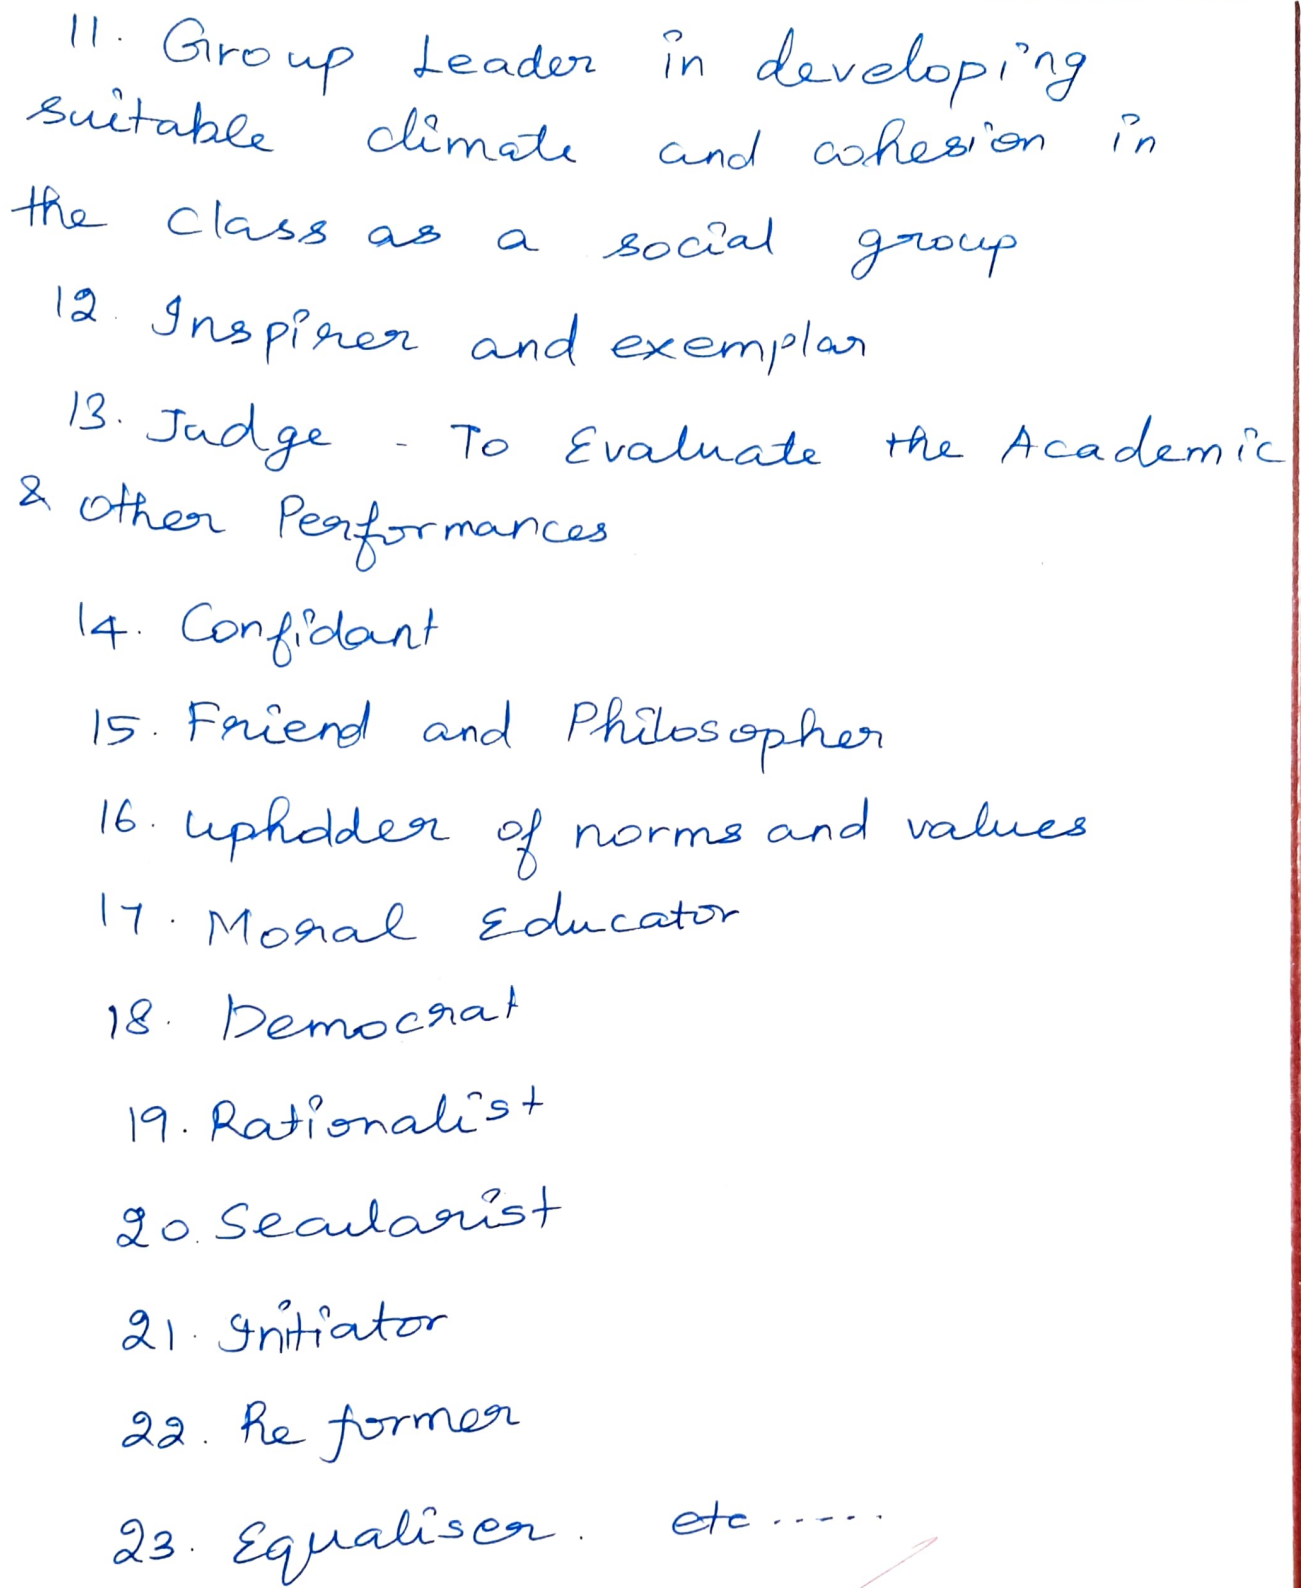 11. Group Leader in developing
suitable climate and cohesion in
the class as a social group
12. Inspirer and exemplar
13. Judge - To Evaluate the Academic
& other Performances
14. Confidant
15. Friend and Philosopher
16. upholder of norms and values
17. Moral Educator
18. Democrat
19. Rationalist
20. Secularist
21. Initiator
22. Re former
23. Equaliser. etc .....